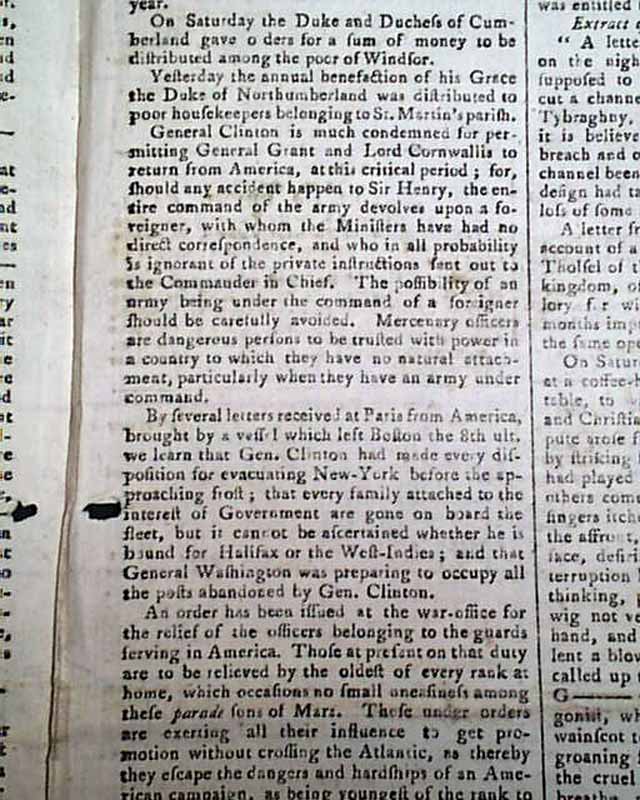 year.
On Saturday the Duke and Ducheſs of Cum-
berland gave o ders for a ſum of money to be
diſtributed among the poor of Windſor.
Yeſterday the annual benefaction of his Grace
the Duke of Northumberland was diſtributed to
poor houſekeepers belonging to St. Martin's pariſh.
General Clinton is much condemned for per-
mitting General Grant and Lord Cornwallis to
return from America, at this critical period; for,
ſhould any accident happen to Sir Henry, the en-
tire command of the army devolves upon a fo-
reigner, with whom the Miniſters have had no
direct correſpondence, and who in all probability
is ignorant of the private inſtructions ſent out to
the Commander in Chief. The poſſibility of an
army being under the command of a foreigner
ſhould be carefully avoided. Mercenary officers
are dangerous perſons to be truſted with power in
a country to which they have no natural attach-
ment, particularly when they have an army under
command.
By ſeveral letters received at Paris from America,
brought by a veſſ l which left Boſton the 8th ult.
we learn that Gen. Clinton had made every diſ-
poſition for evacuating New-York before the ap-
proaching froſt; that every family attached to the
intereſt of Government are gone on board the
fleet, but it cannot be aſcertained whether he is
bound for Halifax or the Weſt-Indies; and that
General Waſhington was preparing to occupy all
the poſts abandoned by Gen. Clinton.
An order has been iſſued at the war-office for
the relief of the officers belonging to the guards
ſerving in America. Thoſe at preſent on that duty
are to be relieved by the oldeſt of every rank at
home, which occaſions no ſmall uneaſineſs among
theſe parade ſons of Mars. Thoſe under orders
are exerting all their influence to get pro-
motion without croſſing the Atlantic, as thereby
they eſcape the dangers and hardſhips of an Ame-
rican campaign, as being youngeſt of the rank to
was entitled
Extract
" A lette
on the nigh
ſuppoſed to
cut a channe
Tybraghny,
it is believe
breach and o
channel been
deſign had ta
loſs of ſome
A letter fr
account of a
Tholſel of t
kingdom, o
lory f r wi
months imp
the ſame ope
On Satur
at a coffee-h
table, to w
and Chriſtia
pute aroſe f
by ſtriking
had played
others come
fingers itche
the affront,
face, deſiri
terruption
thinking,
wig not ve
hand, and
lent a blow
called up
G——
goniſt, wh
wainſcot t
groaning
the cruel
breathe